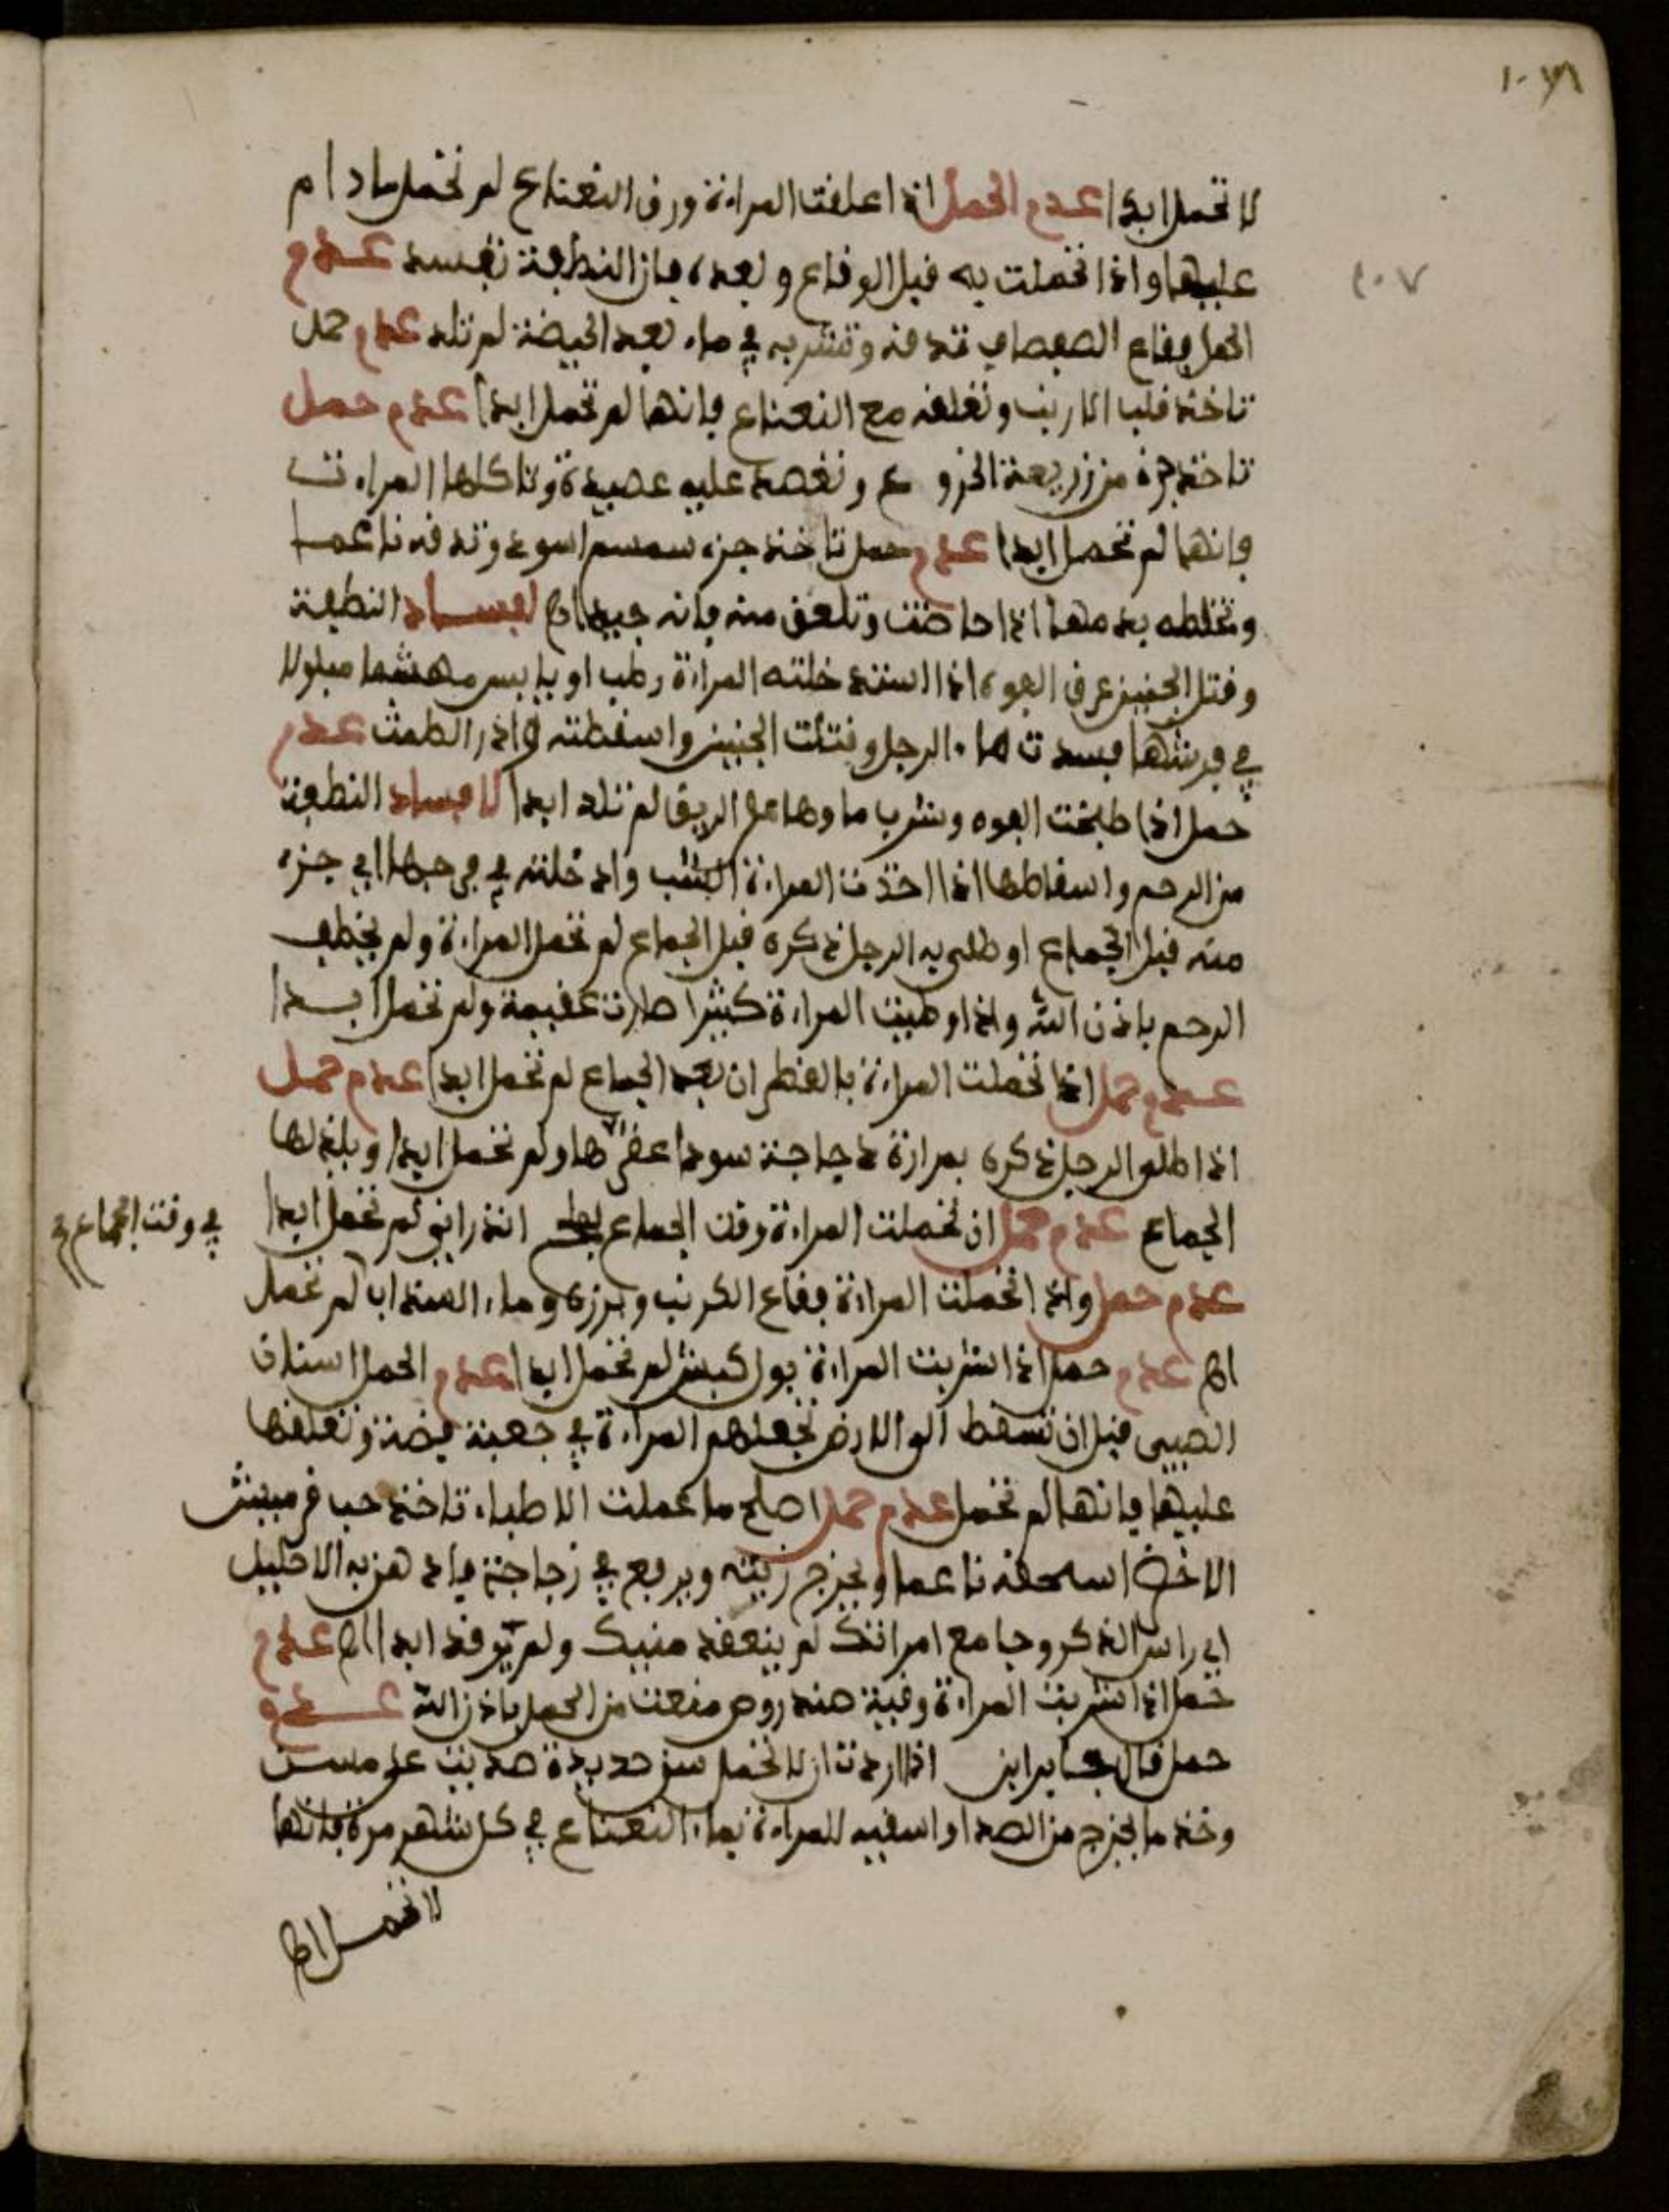 لا تحمل ابدا عدم الحمل اذا علقت المراءة ورق النعناع لم تحمل ما دام
عليها واذا تحملت به قبل الوقاع وبعده فان النطفة تفسد عدم
الحمل فقاع الصفصاف تدقه وتشربه في ماء بعد الحيضة لم تلد عدم حمل
تاخذ قلب الارنب وتعلقه مع النعناع فانها لم تحمل ابدا عدم حمل
تاخذ جزء من زريعة الخروع وتعصد عليه عصيدة وتاكلها المراءت
فانها لم تحمل ابدا عدم حمل تاخذ جزء سمسم اسود وتدقه ناعما
وتخلطه بدمها اذا حاضت وتلعق منه فانه جيد اهـ لفساد النطفة
وقتل الجنين عرق الفوه اذا استدخلته المراءة رطب او يابس مهشما مبلولا
في فرجها فسدت ماء الرجل وقتلت الجنين واسقطته وادر الطمث عدم
حمل اذا طبخت الفوه وشرب ماوها على الريق لم تلد ابدا لافساد النطفة
من الرحم واسقاطها اذا اخذت المراءة الشب وادخلته في فرجها اي جزء
منه قبل الجماع او طلى به الرجل ذكره قبل الجماع لم تحمل المراءة ولم يخطف
الرحم باذن الله واذا وطيت المراءة كثيرا صارت عقيمة ولم تحمل ابدا
عدم حمل اذا تحملت المراءة بالقطران بعد الجماع لم تحمل ابدا عدم حمل
اذا طلى الرجل ذكره بمرارة دجاجة سودا عقرها ولم تحمل ابدا ويلذ لها
الجماع عدم حمل ان تحملت المراءة وقت الجماع انذراني لم تحمل ابدا
في وقت الجماع صح
عدم حمل واذا تحملت المراءة فقاع الكرنب وبزره وماء السنداب لم تحمل
اهـ عدم حمل اذا شربت المراءة بول كبش لم تحمل ابدا عدم الحمل اسنان
الصبي قبل ان تسقط الى الارض تجعلهم المراءة في جعبة فضة وتعلقها
عليها فانها لم تحمل عدم حمل اصلح ما عملت الاطباء تاخذ حب قرميش
الاخضر اسحقه ناعما ويخرج زيته ويرفع في زجاجة وادهن به الاحليل
اي راس الذكر وجامع امراتك لم ينعقد منيك ولم توقد ابدا اهـ عدم
حمل اذا شربت المراءة وقية صندروص منعت من الحمل باذن الله عدم
حمل قال جابر اذا اردت ان لا تحمل سن حديدة صديت على مسن
وخذ ما يخرج من الصدا واسقيه للمراءة بماء النعناع في كل شهر مرة فانها
لا تحمل اهـ